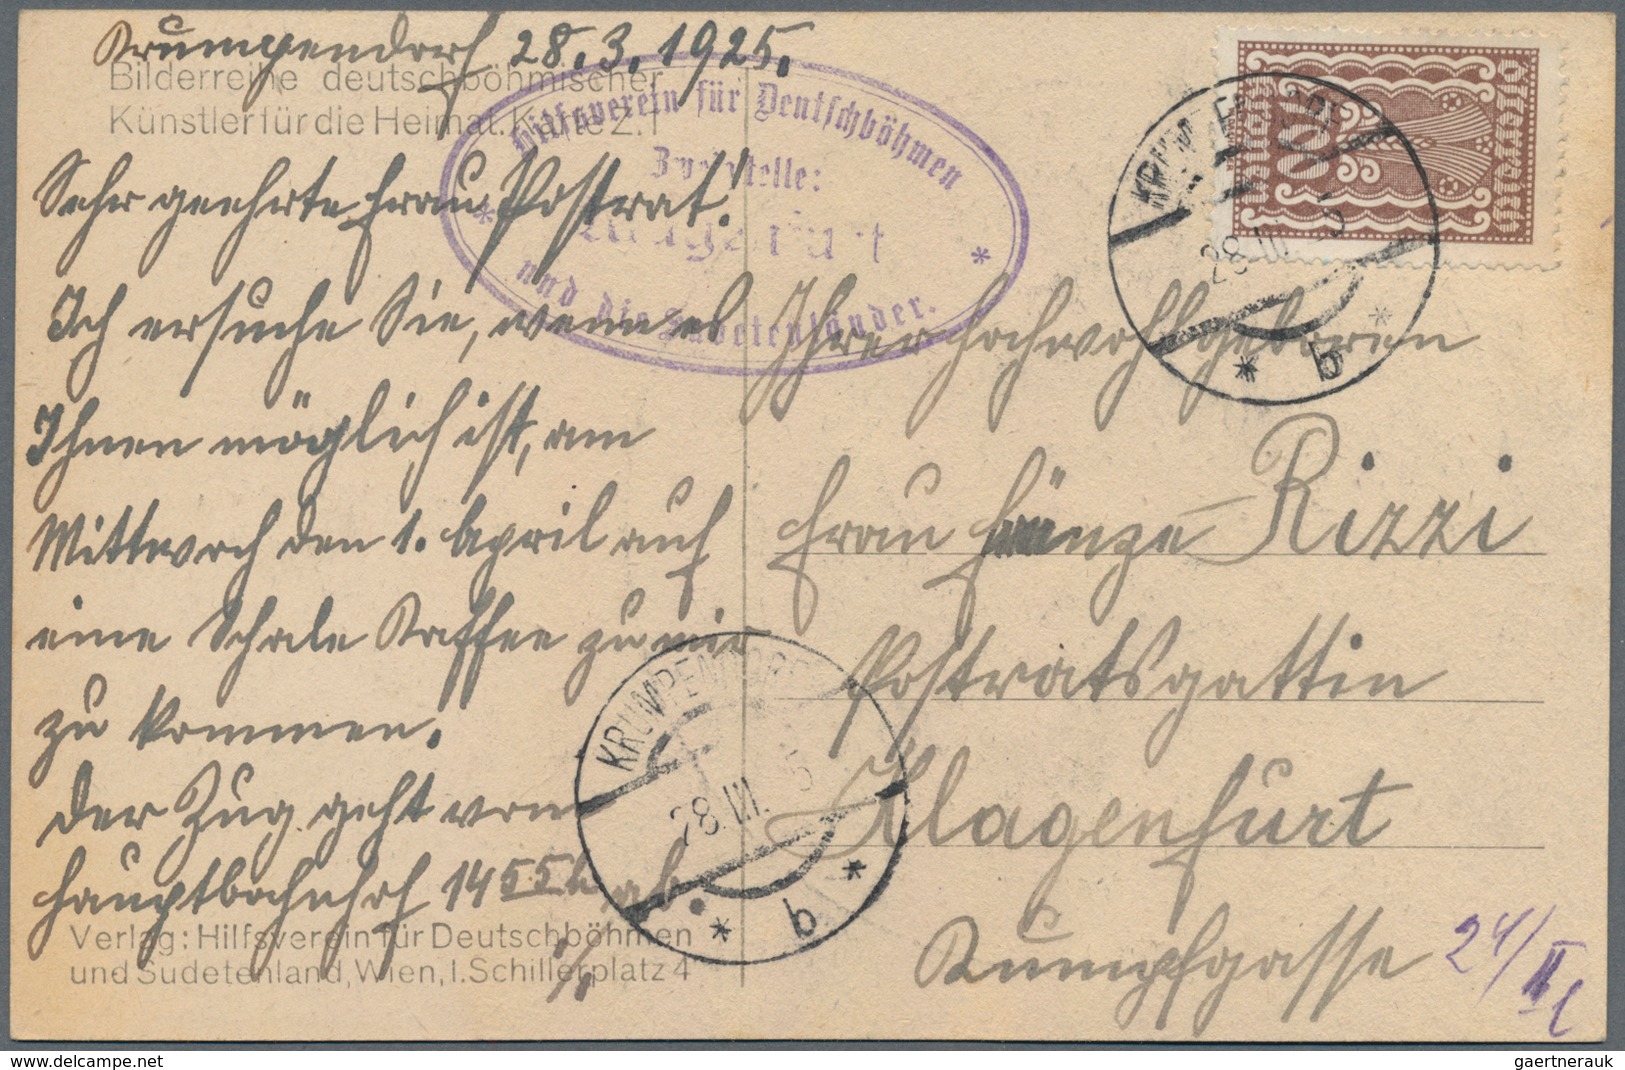 Krumpendorf 28.3.1925.
Bilderreihe deutschböhmischer
Künstler für die Heimat. Karte Z. 1
Hilfsverein für Deutschböhmen
Zweigstelle:
Klagenfurt
und die Sudetenländer.
Sehr geehrte Frau Postrat!
Ich ersuche Sie, wenn es
Ihnen möglich ist, am
Mittwoch den 1. April auf
eine Schale Kaffee zu mir
zu kommen.
Der Zug geht vom
Hauptbahnhof 14 55 h ab.
Verlag: Hilfsverein für Deutschböhmen
und Sudetenland, Wien, I. Schillerplatz 4
KRUMPENDORF
28.III. 5
* b *
100
ÖSTERREICH
KRUMPENDORF
28.III. 5
* b *
Ihrer Hochwohlgeboren
Frau Rizzi
Postratsgattin
Klagenfurt
Kumpfgasse 24/II
Delcampe.net
gaertnerauk